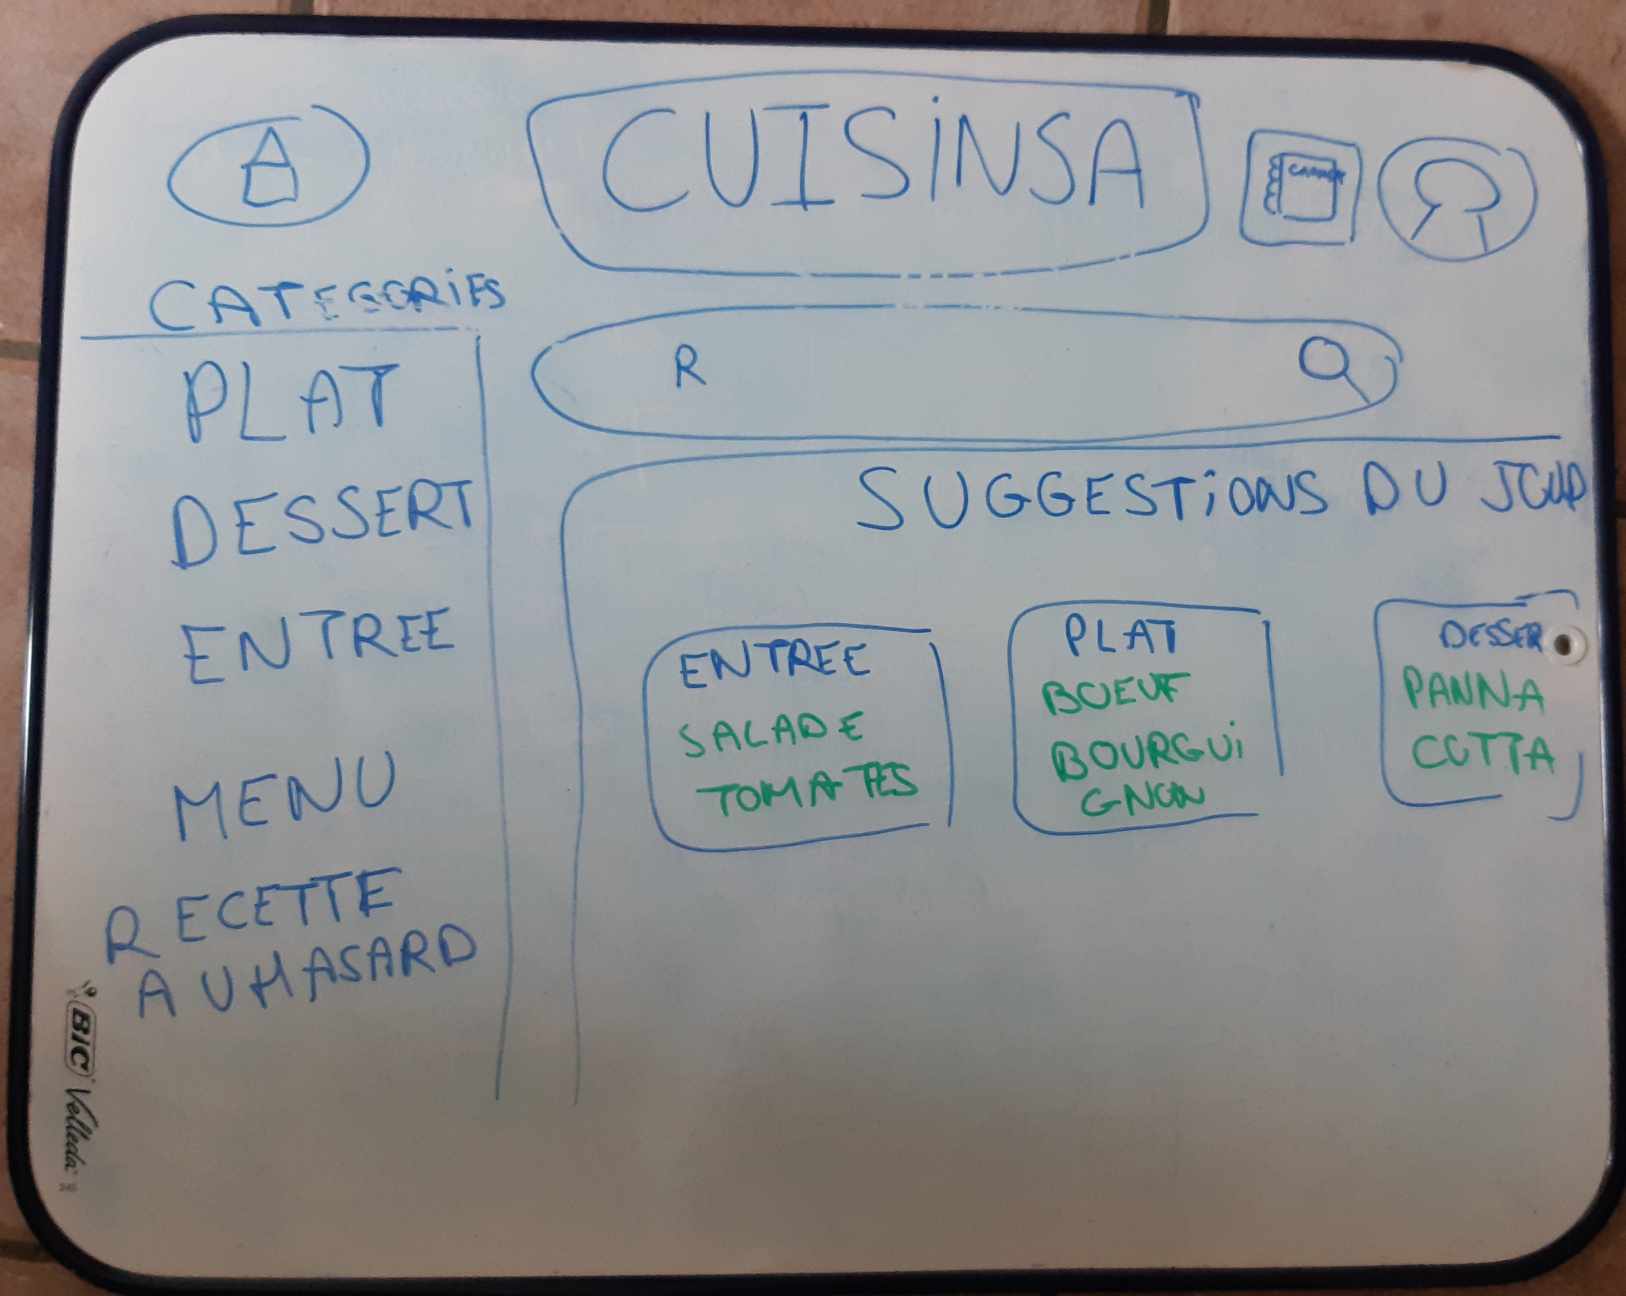 CUISINSA
CARNET
CATEGORIES
PLAT
DESSERT
ENTREE
MENU
RECETTE
AU HASARD
R
SUGGESTIONS DU JOUR
ENTREE
SALADE
TOMATES
PLAT
BOEUF
BOURGUI
GNON
DESSER
PANNA
COTTA
BIC Velleda